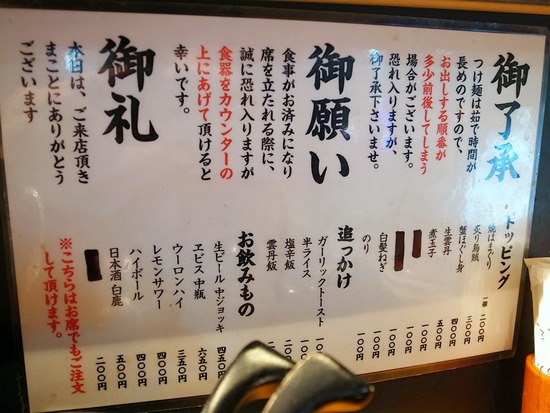 御了承
つけ麺は茹で時間が
長めのですので、
お出しする順番が
多少前後してしまう
場合がございます。
恐れ入りますが、
御了承下さいませ。
御願い
食事がお済みになり
席を立たれる際に、
誠に恐れ入りますが
食器をカウンターの
上にあげて頂けると
幸いです。
御礼
本日は、ご来店頂き
まことにありがとう
ございます
トッピング
焼はまぐり 一個 二〇〇円
炙り烏賊 三〇〇円
蟹ほぐし身 四〇〇円
生雲丹 五〇〇円
煮玉子 一〇〇円
白髪ねぎ 一〇〇円
のり 一〇〇円
追っかけ
ガーリックトースト
半ライス
塩辛飯
雲丹飯
お飲みもの
生ビール 中ジョッキ 四五〇円
ヱビス 中瓶 六五〇円
ウーロンハイ 三五〇円
レモンサワー 四〇〇円
ハイボール 四〇〇円
日本酒 白鹿 五〇〇円
二〇〇円
※こちらはお席でもご注文
して頂けます。